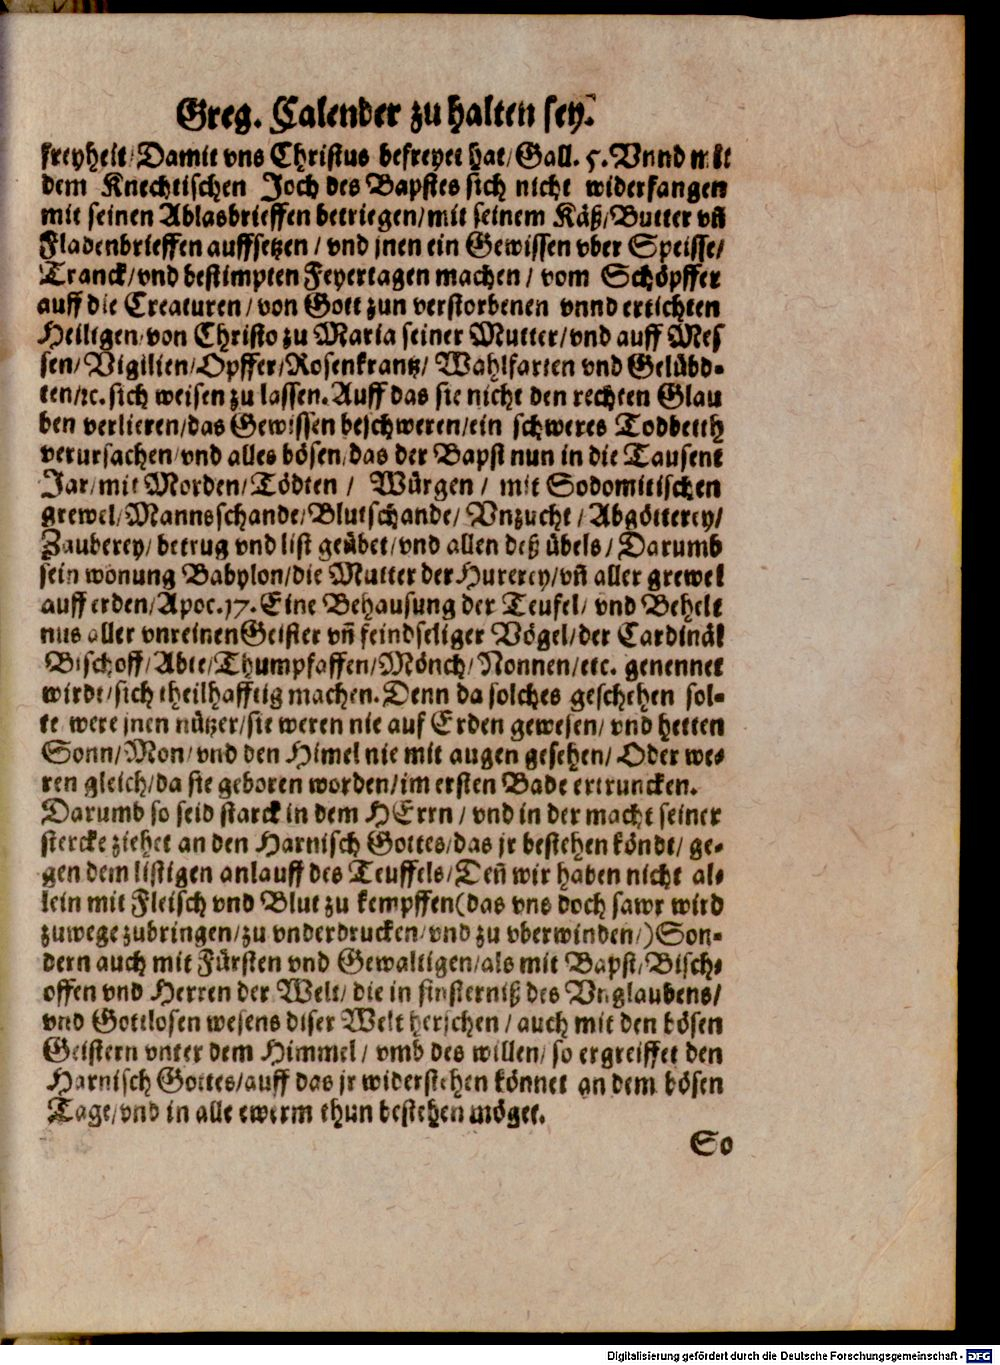 Greg. Calender zu halten sey.
freyheit/Damit vns Christus befreyet hat/Gall. 5. Vnnd mit
dem Knechtischen Joch des Bapstes sich nicht widerfangen
mit seinen Ablasbrieffen betriegen/mit seinem Käß/Butter vñ
Fladenbrieffen auffsetzen / vnd jnen ein Gewissen vber Speisse/
Tranck/vnd bestimpten Feyertagen machen / vom Schöpffer
auff die Creaturen / von Gott zun verstorbenen vnnd ertichten
Heiligen/von Christo zu Maria seiner Mutter/vnd auff Mes
sen/Vigilien/Opffer/Rosenkrantz/ Wahlfarten vnd Gelübd-
ten/ꝛc. sich weisen zu lassen. Auff das sie nicht den rechten Glau
ben verlieren/das Gewissen beschweren/ein schweres Todbeith
verursachen/vnd alles bösen/das der Bapst nun in die Tausent
Jar/mit Morden/Tödten / Würgen / mit Sodomitischen
grewel/Mannsschande/Blutschande/ Vnzucht / Abgötterey/
Zauberey/betrug vnd list geübet/vnd allen deß übels / Darumb
sein wonung Babylon/die Mutter der Hurerey/vñ aller grewel
auff erden/Apoc.17. Eine Behausung der Teufel/ vnd Behelt
nus aller vnreinen Geister vñ feindseliger Vögel/der Cardinäl
Bischoff/Abte/Thumpfaffen/Mönch/Nonnen/etc. genennet
wirdt/sich theilhafftig machen. Denn da solches geschehen sol-
te were jnen nützer/sie weren nie auf Erden gewesen/ vnd hetten
Sonn/Mon/vnd den Himel nie mit augen gesehen/ Oder we-
ren gleich/da sie geboren worden/im ersten Bade ertruncken.
Darumb so seid starck in dem HErrn / vnd in der macht seiner
stercke ziehet an den Harnisch Gottes/das jr bestehen köndt/ ge-
gen dem listigen anlauff des Teuffels/Deñ wir haben nicht al-
lein mit Fleisch vnd Blut zu kempffen(das vns doch sawr wird
zuwege zubringen/zu vnderdrucken/vnd zu vberwinden/)Son-
dern auch mit Fürsten vnd Gewaltigen/als mit Bapst/Bisch-
offen vnd Herren der Welt/ die in finsterniß des Vnglaubens/
vnd Gottlosen wesens diser Welt herschen / auch mit den bösen
Geistern vnter dem Himmel / vmb des willen/ so ergreiffet den
Harnisch Gottes/auff das jr widerstehen könnet an dem bösen
Tage/vnd in alle ewerm thun bestehen möget.
So
Digitalisierung gefördert durch die Deutsche Forschungsgemeinschaft - DFG